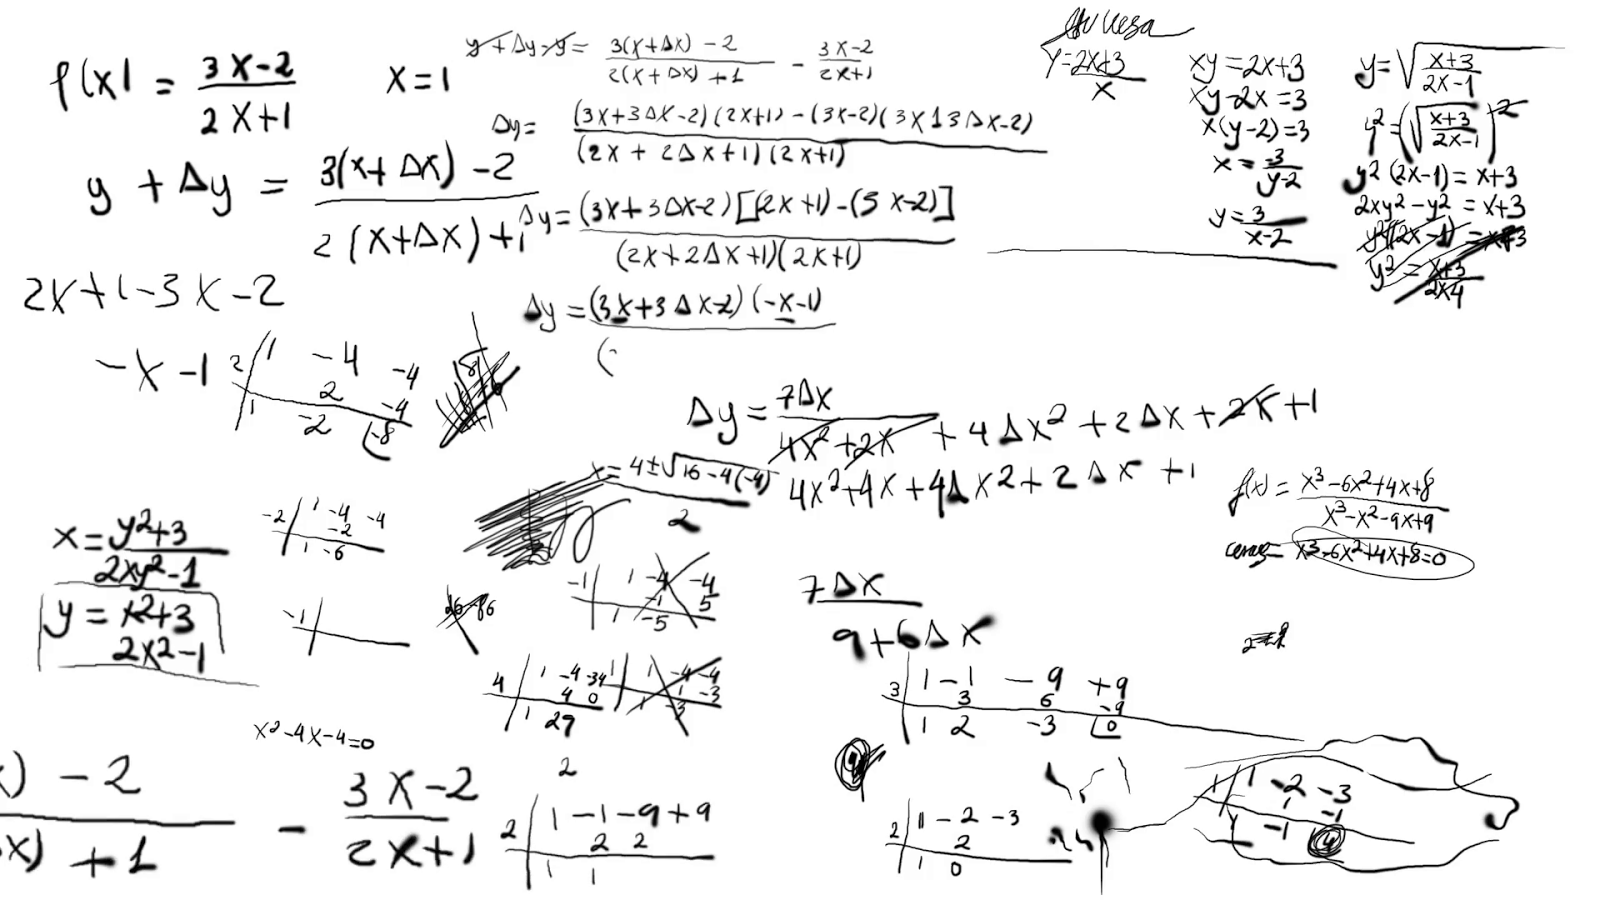 f(x) = (3x-2)/(2x+1)    x=1
y + Δy = (3(x+Δx) -2)/(2(x+Δx)+1
2x+1-3x-2
-x -1
2 | 1 -4 -4
2 -4
1 -2 -8
y + Δy - y = (3(x+Δx) -2)/(2(x+Δx)+1) - (3x-2)/(2x+1)
Δy = ((3x+3Δx-2)(2x+1) - (3x-2)(3x13Δx-2))/((2x+2Δx+1)(2x+1))
Δy = ((3x+3Δx-2)[(2x+1)-(3x-2)])/((2x+2Δx+1)(2x+1))
Δy = (3x+3Δx-2)(-x-1)
(
y = (2x+3)/x
xy = 2x+3
xy-2x = 3
x(y-2) = 3
x = 3/(y-2)
y = 3/(x-2)
y = √((x+3)/(2x-1))
y² = (√((x+3)/(2x-1)))²
y²(2x-1) = x+3
2xy² - y² = x+3
y²(2x-1) = x+3
y² = (x+3)/(2x4
Δy = 7Δx/(4x²+2x + 4Δx² + 2Δx + 2x + 1
4x²+4x+4Δx²+2Δx +1
x = (4±√(16-4(-4)))/2
f(x) = (x³-6x²+4x+8)/(x³-x²-9x+9)
x³-6x²+4x+8=0
x = (y²+3)/(2xy²-1)
y = (x²+3)/(2x²-1)
-2 | 1 -4 -4
-2
1 -6
-1 |
-1 | 1 -4 -4
-1 5
1 -5
7Δx/(9+6Δx
4 | 1 -4 -34
4 0
1 29
1 | 1 -4 -4
1 -3
1 -3
3 | 1 -1 -9 +9
3 6 -9
1 2 -3 0
x²-4x-4=0
x) -2
x) +1
- (3x-2)/(2x+1)
2
2 | 1 -1 -9 +9
2 2
1 1
2 | 1 -2 -3
2
1 0
1 | 1 -2 -3
1 -1
1 -1 4